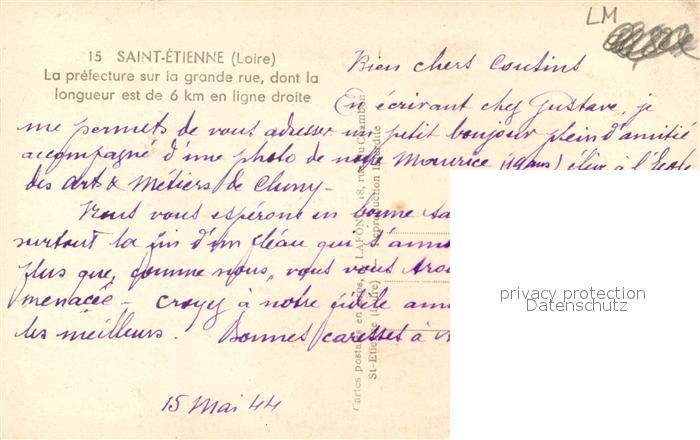 LM
15 SAINT-ÉTIENNE (Loire)
La préfecture sur la grande rue, dont la
longueur est de 6 km en ligne droite
Bien chers Cousins
En écrivant chez Gustave, je
me permets de vous adresser un petit bonjour plein d'amitié
accompagné d'une photo de notre Maurice (19 ans) élève à l'Ecole
des Art & Métiers de Cluny -
Nous vous espérons en bonne
surtout la fin d'un fléau qui s'anno
plus que, comme nous, vous vous trou
menacée - croyez à notre
les meilleurs. Bonnes caresses à
15 Mai 44
Cartes postales en gros, LAFOND, 18, rue du Chambon
St-Etienne (Loire) - Reproduction Interdite
privacy protection
Datenschutz